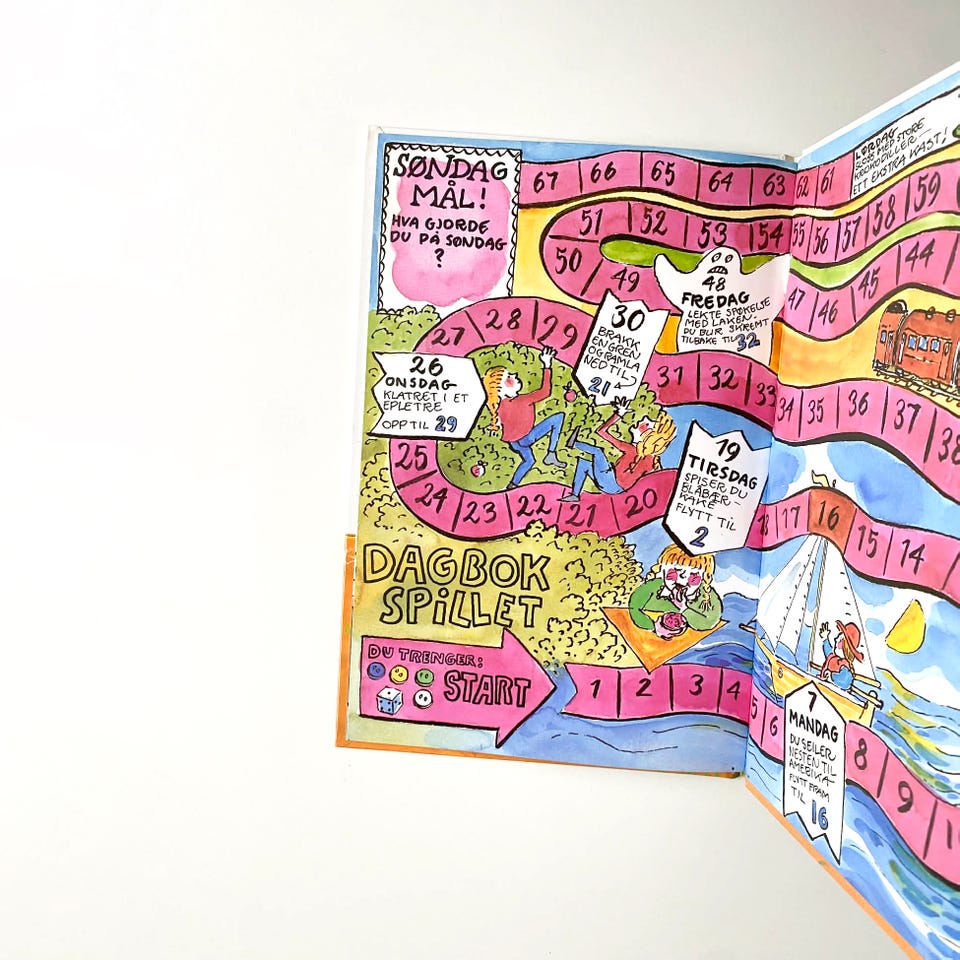 SØNDAG
MÅL!
HVA GJORDE
DU PÅ SØNDAG
?
67 66 65 64 63 62 61
LØRDAG
SLOSS MED STORE
KROKODILLER—
ETT EKSTRA KAST!
51 52 53 54 55 56 57 58 59
50 49
48
FREDAG
LEKTE SPØKELSE
MED LAKEN.
DU BLIR SKREMT
TILBAKE TIL 32
47 46 45 44
27 28 29
30
BRAKK
EN GREN
OG RAMLA
NED TIL
21
31 32 33 34 35 36 37 38
26
ONSDAG
KLATRET I ET
EPLETRE
OPP TIL 29
25 24 23 22 21 20
19
TIRSDAG
SPISER DU
BLÅBÆR-
KAKE
FLYTT TIL
2
18 17 16 15 14
DAGBOK
SPILLET
DU TRENGER:
START
1 2 3 4 5 6
7
MANDAG
DU SEILER
NESTEN TIL
AMERIKA
FLYTT FRAM
TIL 16
8 9